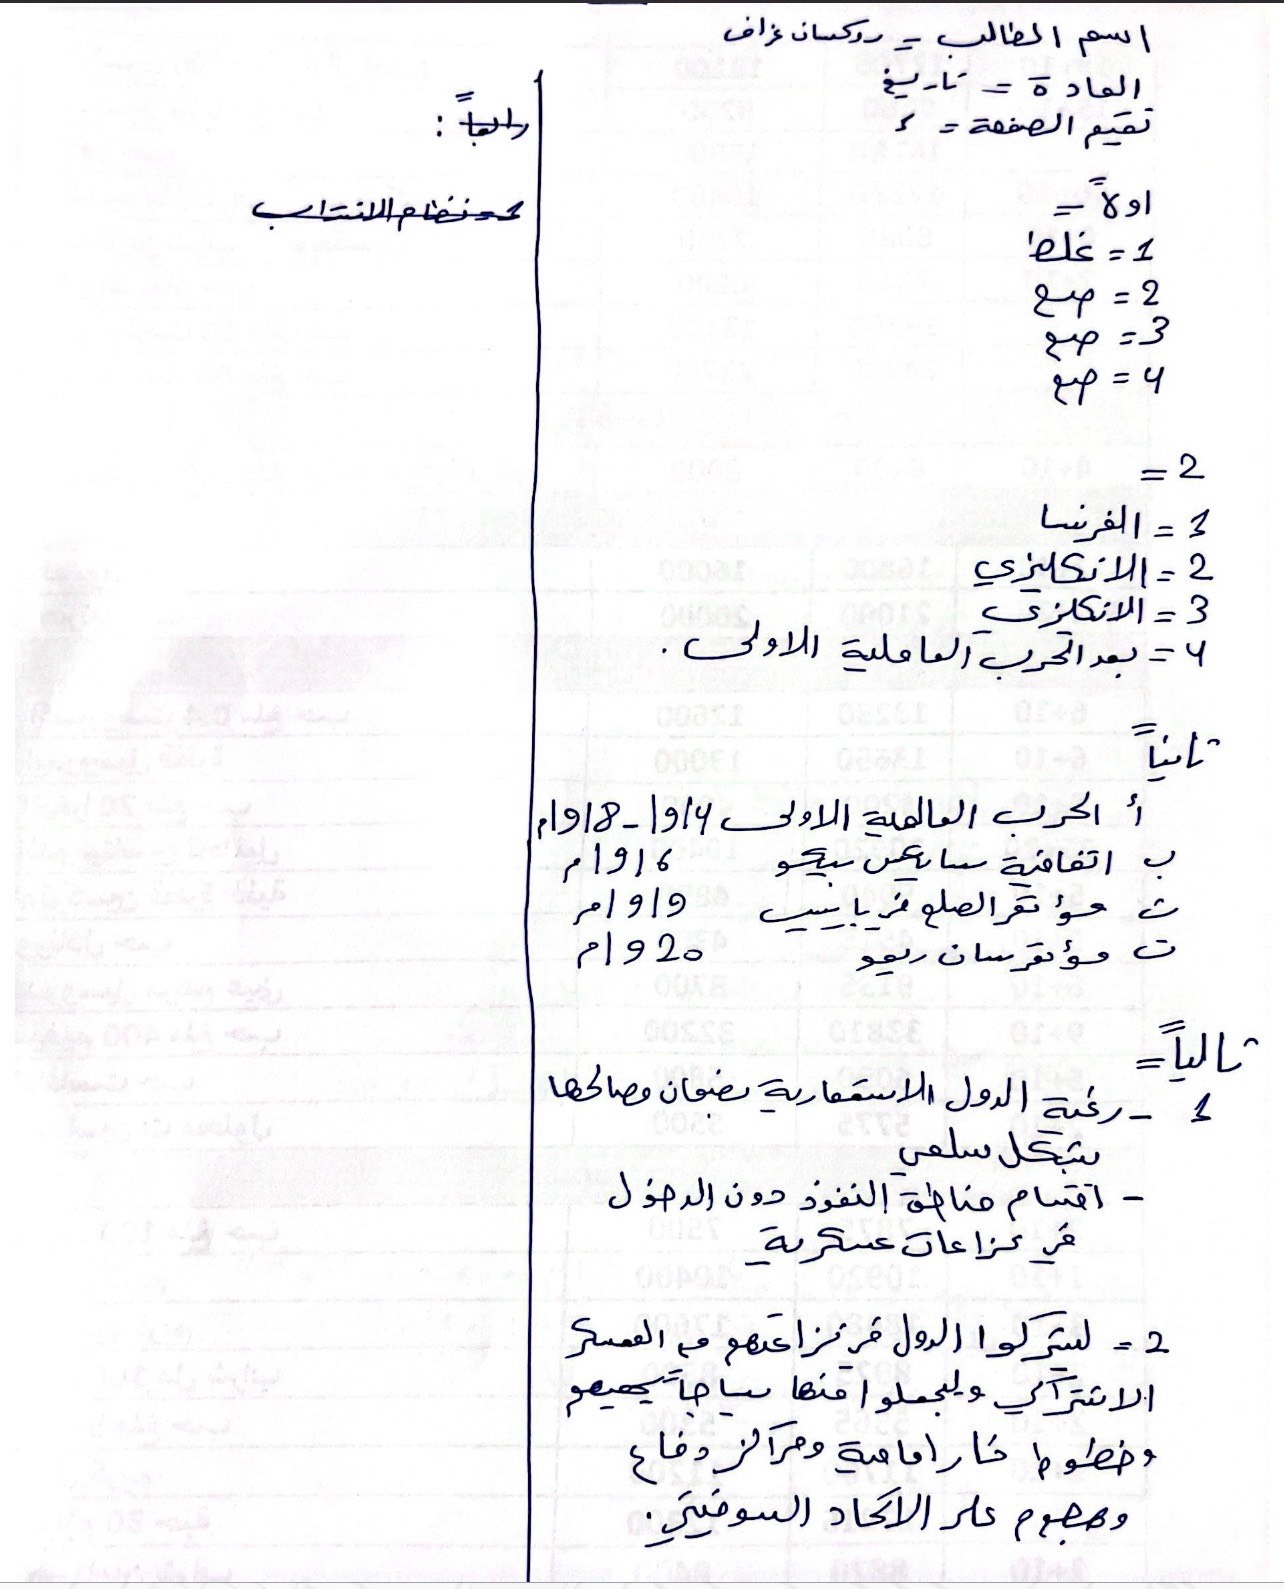 اسم الطالب = روكسان غزاف
المادة = تاريخ
تقيم الصفحة =
اولاً =
1 = غلط
2 = صح
3 = صح
4 = صح
2 =
1 = الفرنسا
2 = الانكليزي
3 = الانكلزي
4 = بعد الحرب العاملية الاولى .
ثانياً =
أ الحرب العالمية الاولى 1914 - 1918م
ب اتفاقية سايكس بيكو 1916م
ث مؤتمر الصلح في باريس 1919م
ت مؤتمر سان ريمو 1920م
ثالثاً =
1 - رغبة الدول الاستعمارية بضمان مصالحها
بشكل سلمي
- اقتسام مناطق النفوذ دون الدخول
في نزاعات عسكرية
2 = ليشركوا الدول في نزاعتهم مع المعسكر
الاشتراكي وليجعلوا منها سياجاً يحميهم
وخطوط نار امامية ومراكز دفاع
وهجوم على الاتحاد السوفيتي .
رابعاً :
1 - نظام الانتداب